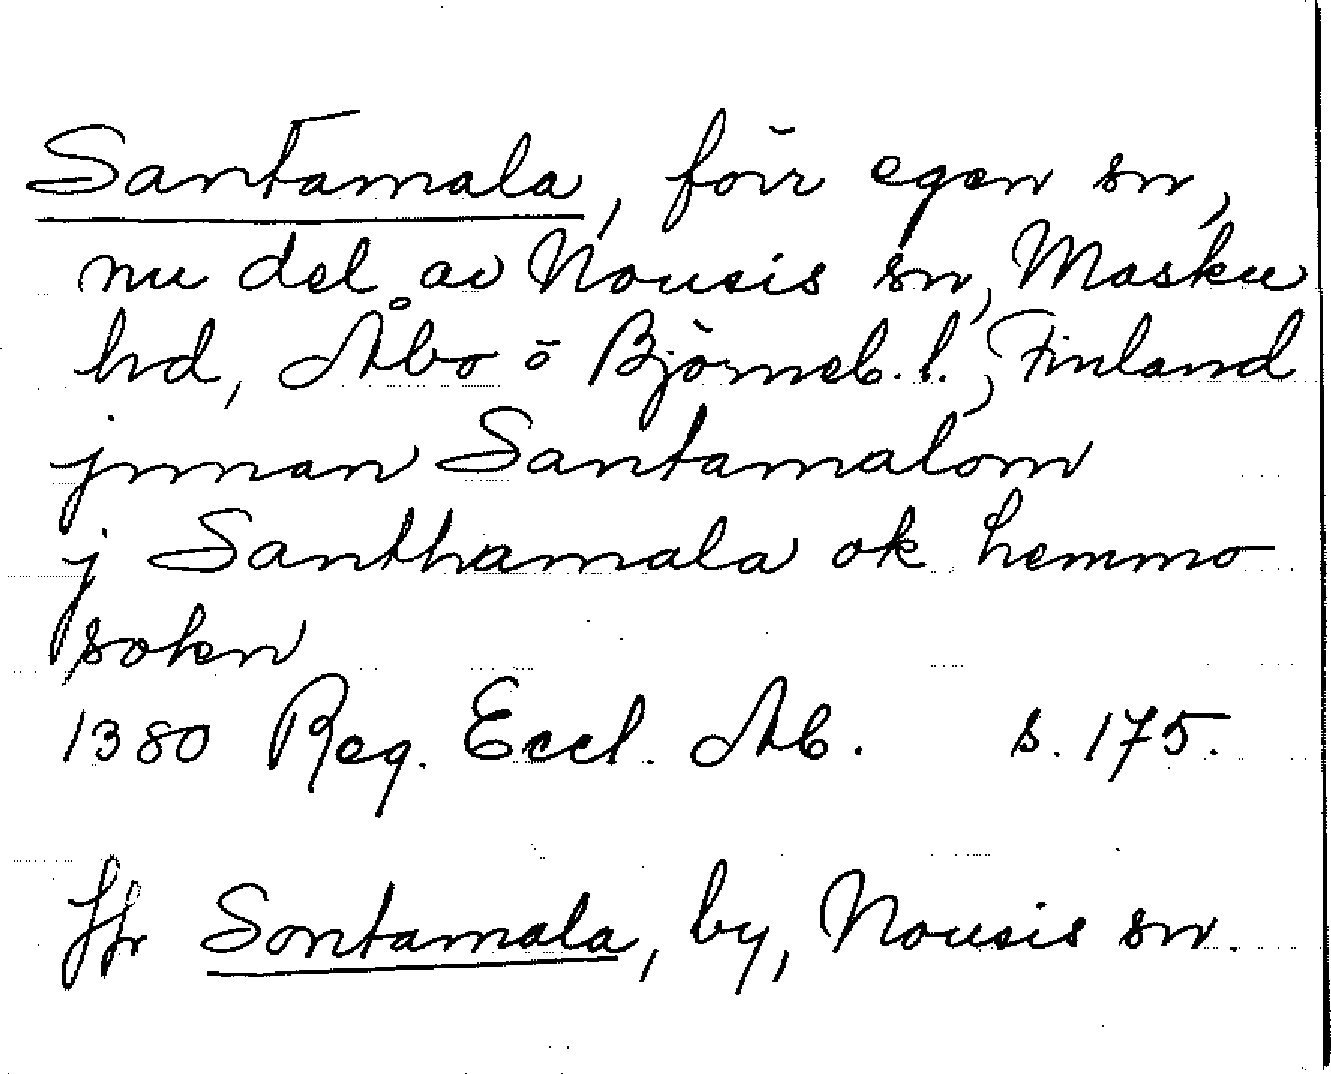 Santamala, förr egen sn,
nu del av Nousis sn, Masku
hd, Åbo o Björneb. l., Finland
jnnan Santamalom
j Santhamala ok hemmo
sokn
1380 Reg. Eccl. Ab. s. 175.
Jfr Sontamala, by, Nousis sn.